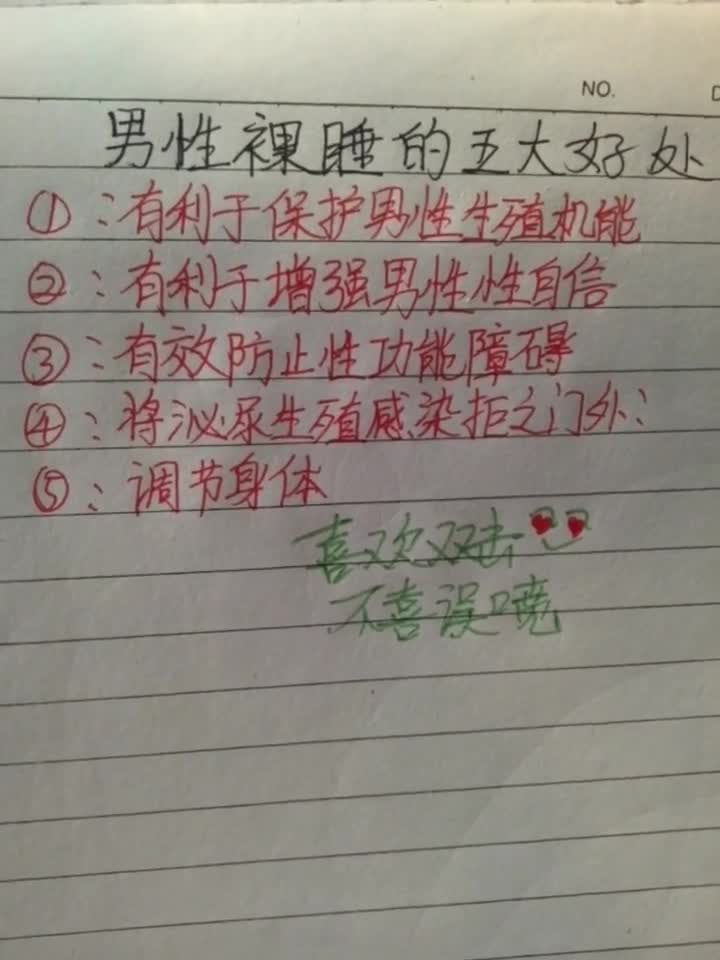 NO.
男性裸睡的五大好处
①：有利于保护男性生殖机能
②：有利于增强男性性自信
③：有效防止性功能障碍
④：将泌尿生殖感染拒之门外：
⑤：调节身体
喜欢双击
不喜误喷